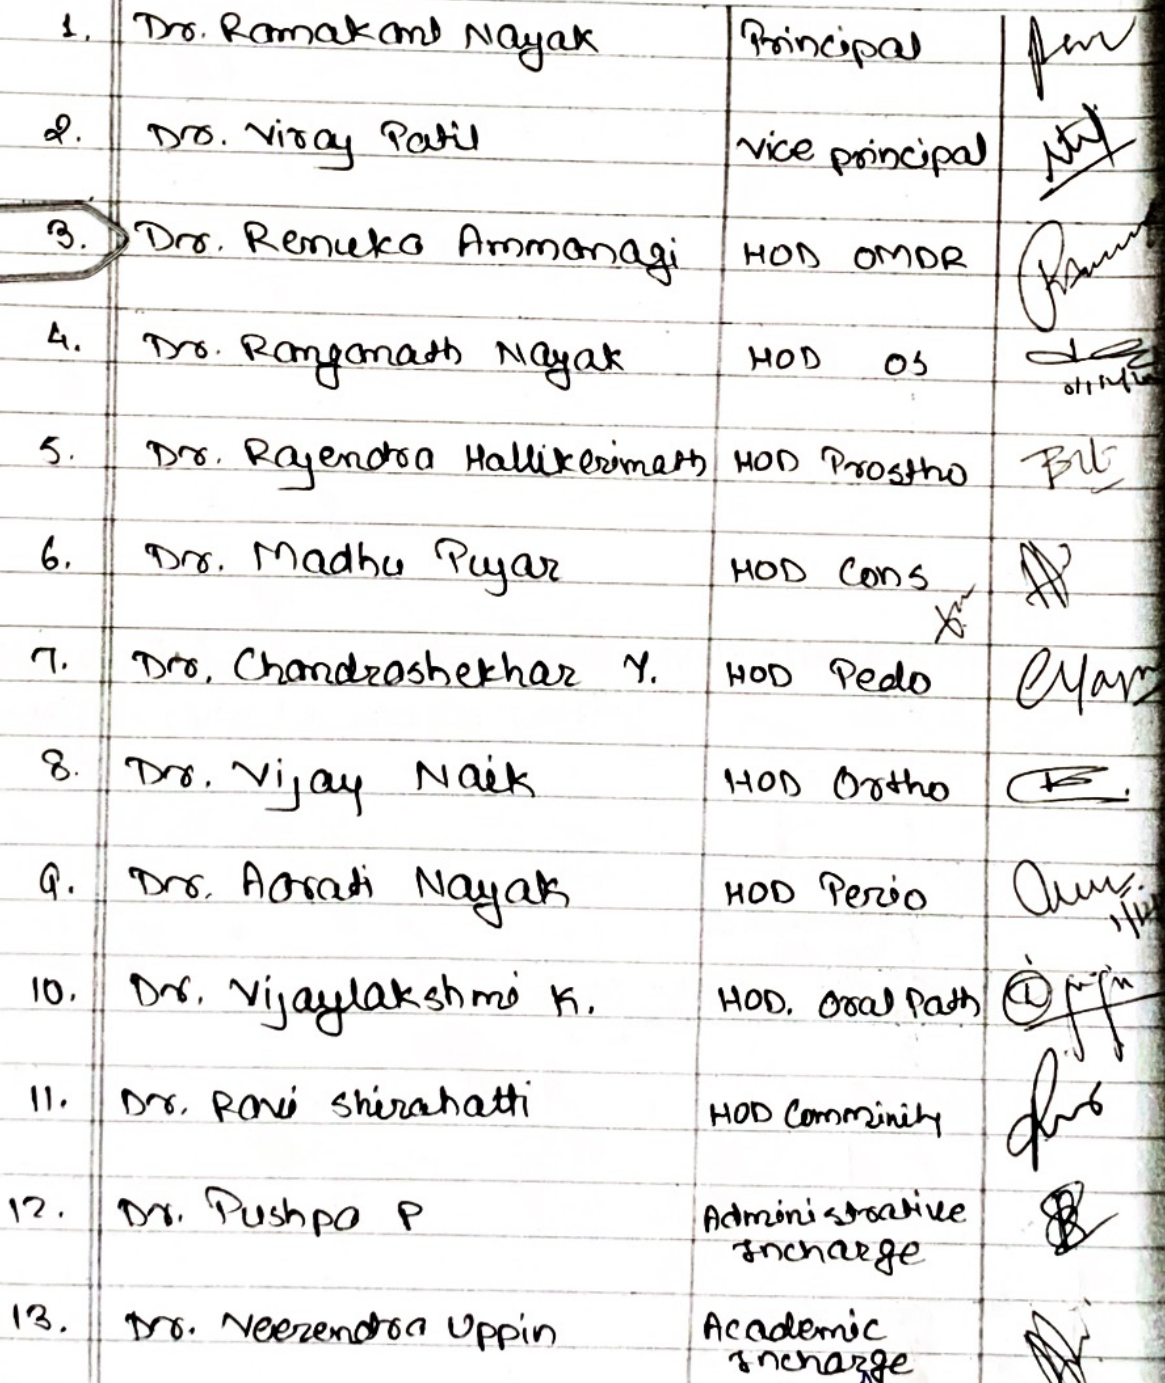 1. Dr. Ramakant Nayak Principal
2. Dr. Viray Patil Vice principal
3. Dr. Renuka Ammanagi HOD OMDR
4. Dr. Ranganath Nayak HOD OS
5. Dr. Rajendra Hallikerimath HOD Prostho
6. Dr. Madhu Pujar HOD Cons
7. Dr. Chandrashekhar Y. HOD Pedo
8. Dr. Vijay Naik HOD Ortho
9. Dr. Aarati Nayak HOD Perio
10. Dr. Vijaylakshmi K. HOD. Oral Path
11. Dr. Ravi Shirahatti HOD Comminity
12. Dr. Pushpa P Administrative
Incharge
13. Dr. Veerendra Uppin Academic
Incharge